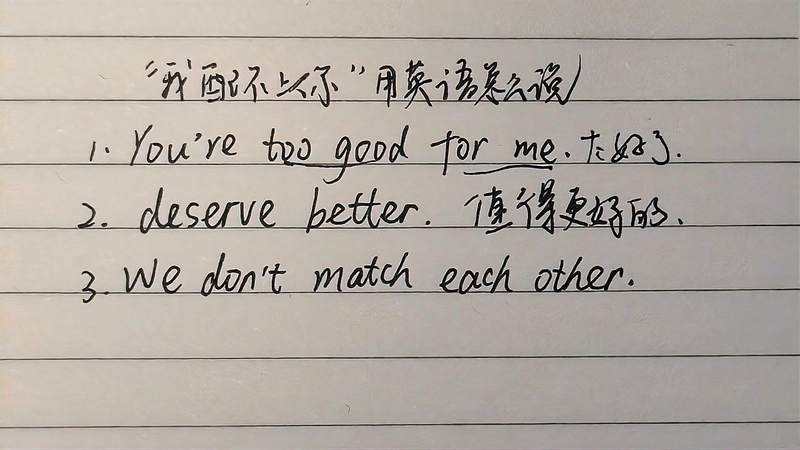 “我配不上你”用英语怎么说
1. You're too good for me. 太好了.
2. deserve better. 值得更好的.
3. We don't match each other.